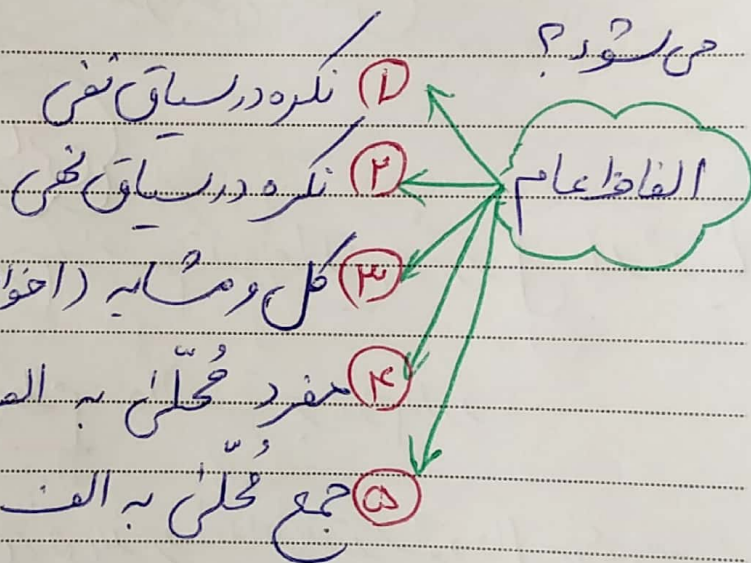 می شود؟
الفاظ عام
① نکره در سیاق نفی
② نکره در سیاق نهی
③ کل و مشابه (اخوا
④ مفرد مُحلّیٰ به الف
⑤ جمع مُحلّیٰ به الف